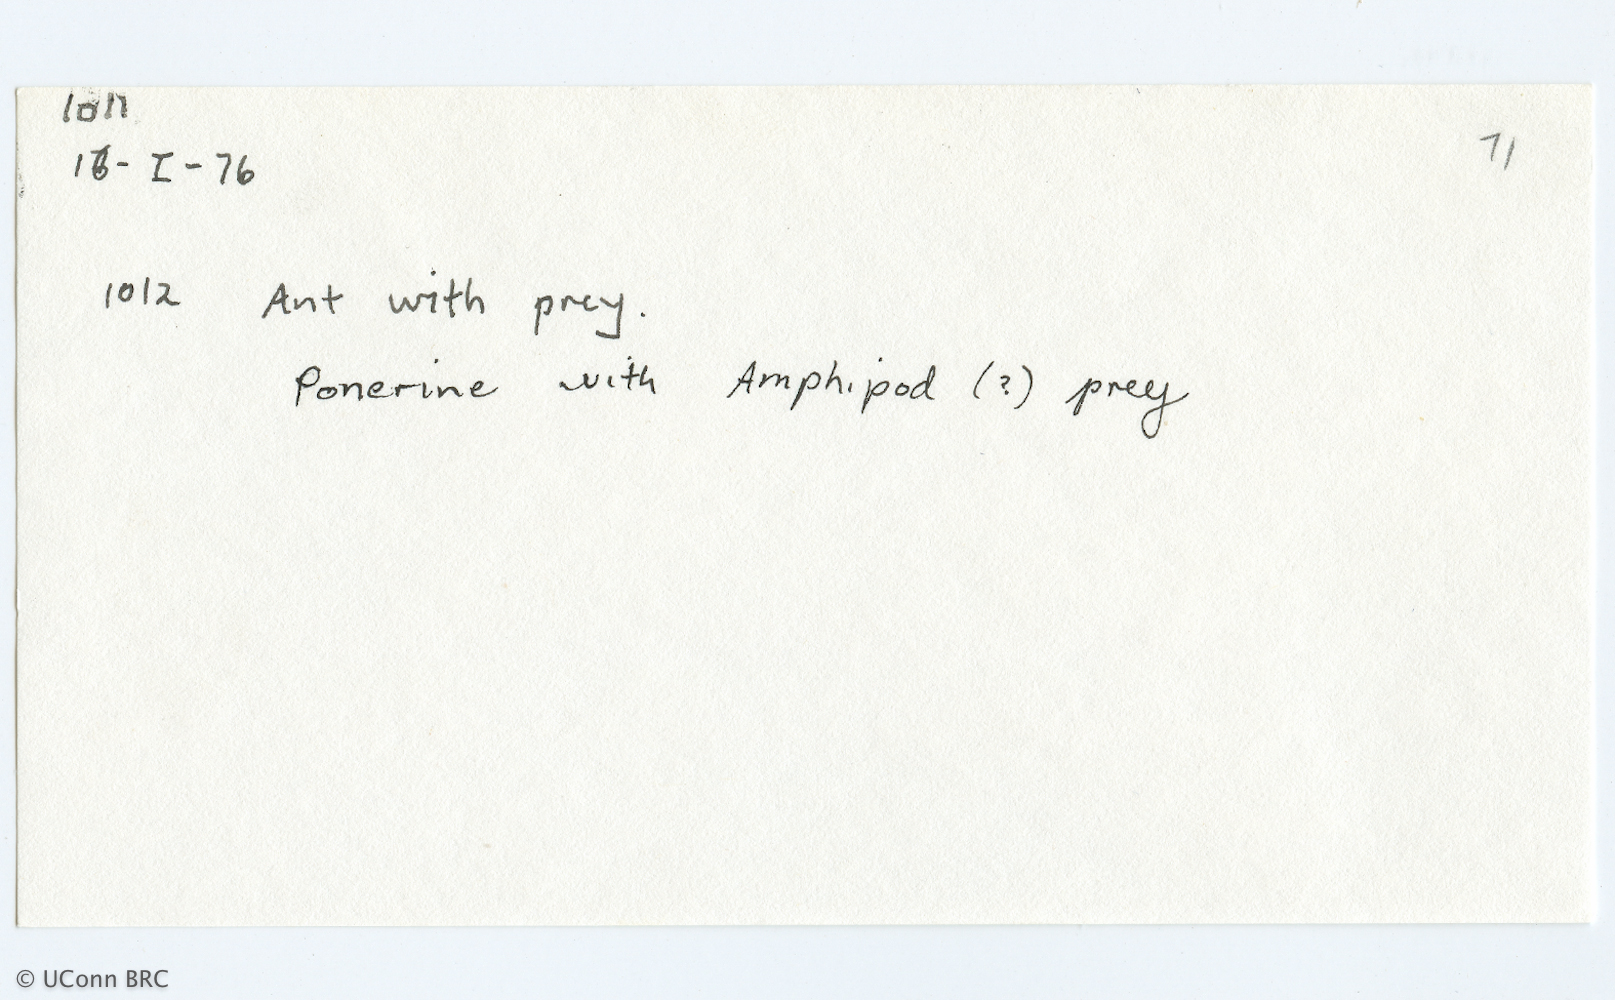 1011
71
16-I-76
1012 Ant with prey.
Ponerine with Amphipod (?) prey
© UConn BRC